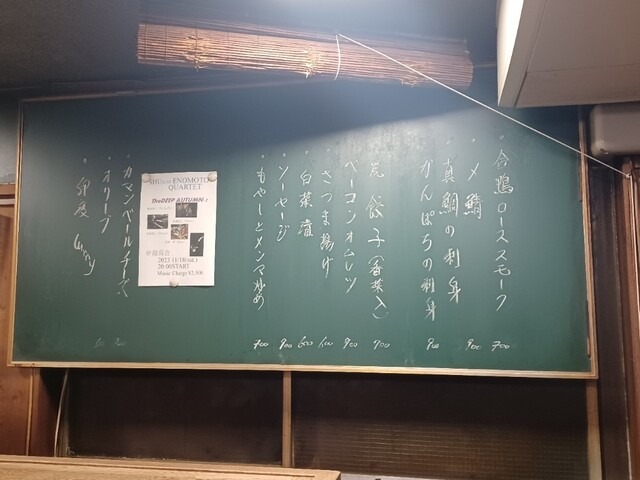 合鴨ローススモーク 700
〆鯖 900
真鯛の刺身
かんぱちの刺身 900
餃子(香菜入) 700
ベーコンオムレツ 900
さつま揚げ 600
白菜漬 600
ソーセージ 900
もやしとメンマ炒め 700
SHU ENOMOTO
QUARTET
The DEEP AUTUMN
2023 11/18(sat.)
20:00 START
Music Charge ¥2,500
カマンベールチーズ
オリーブ
印度 Curry